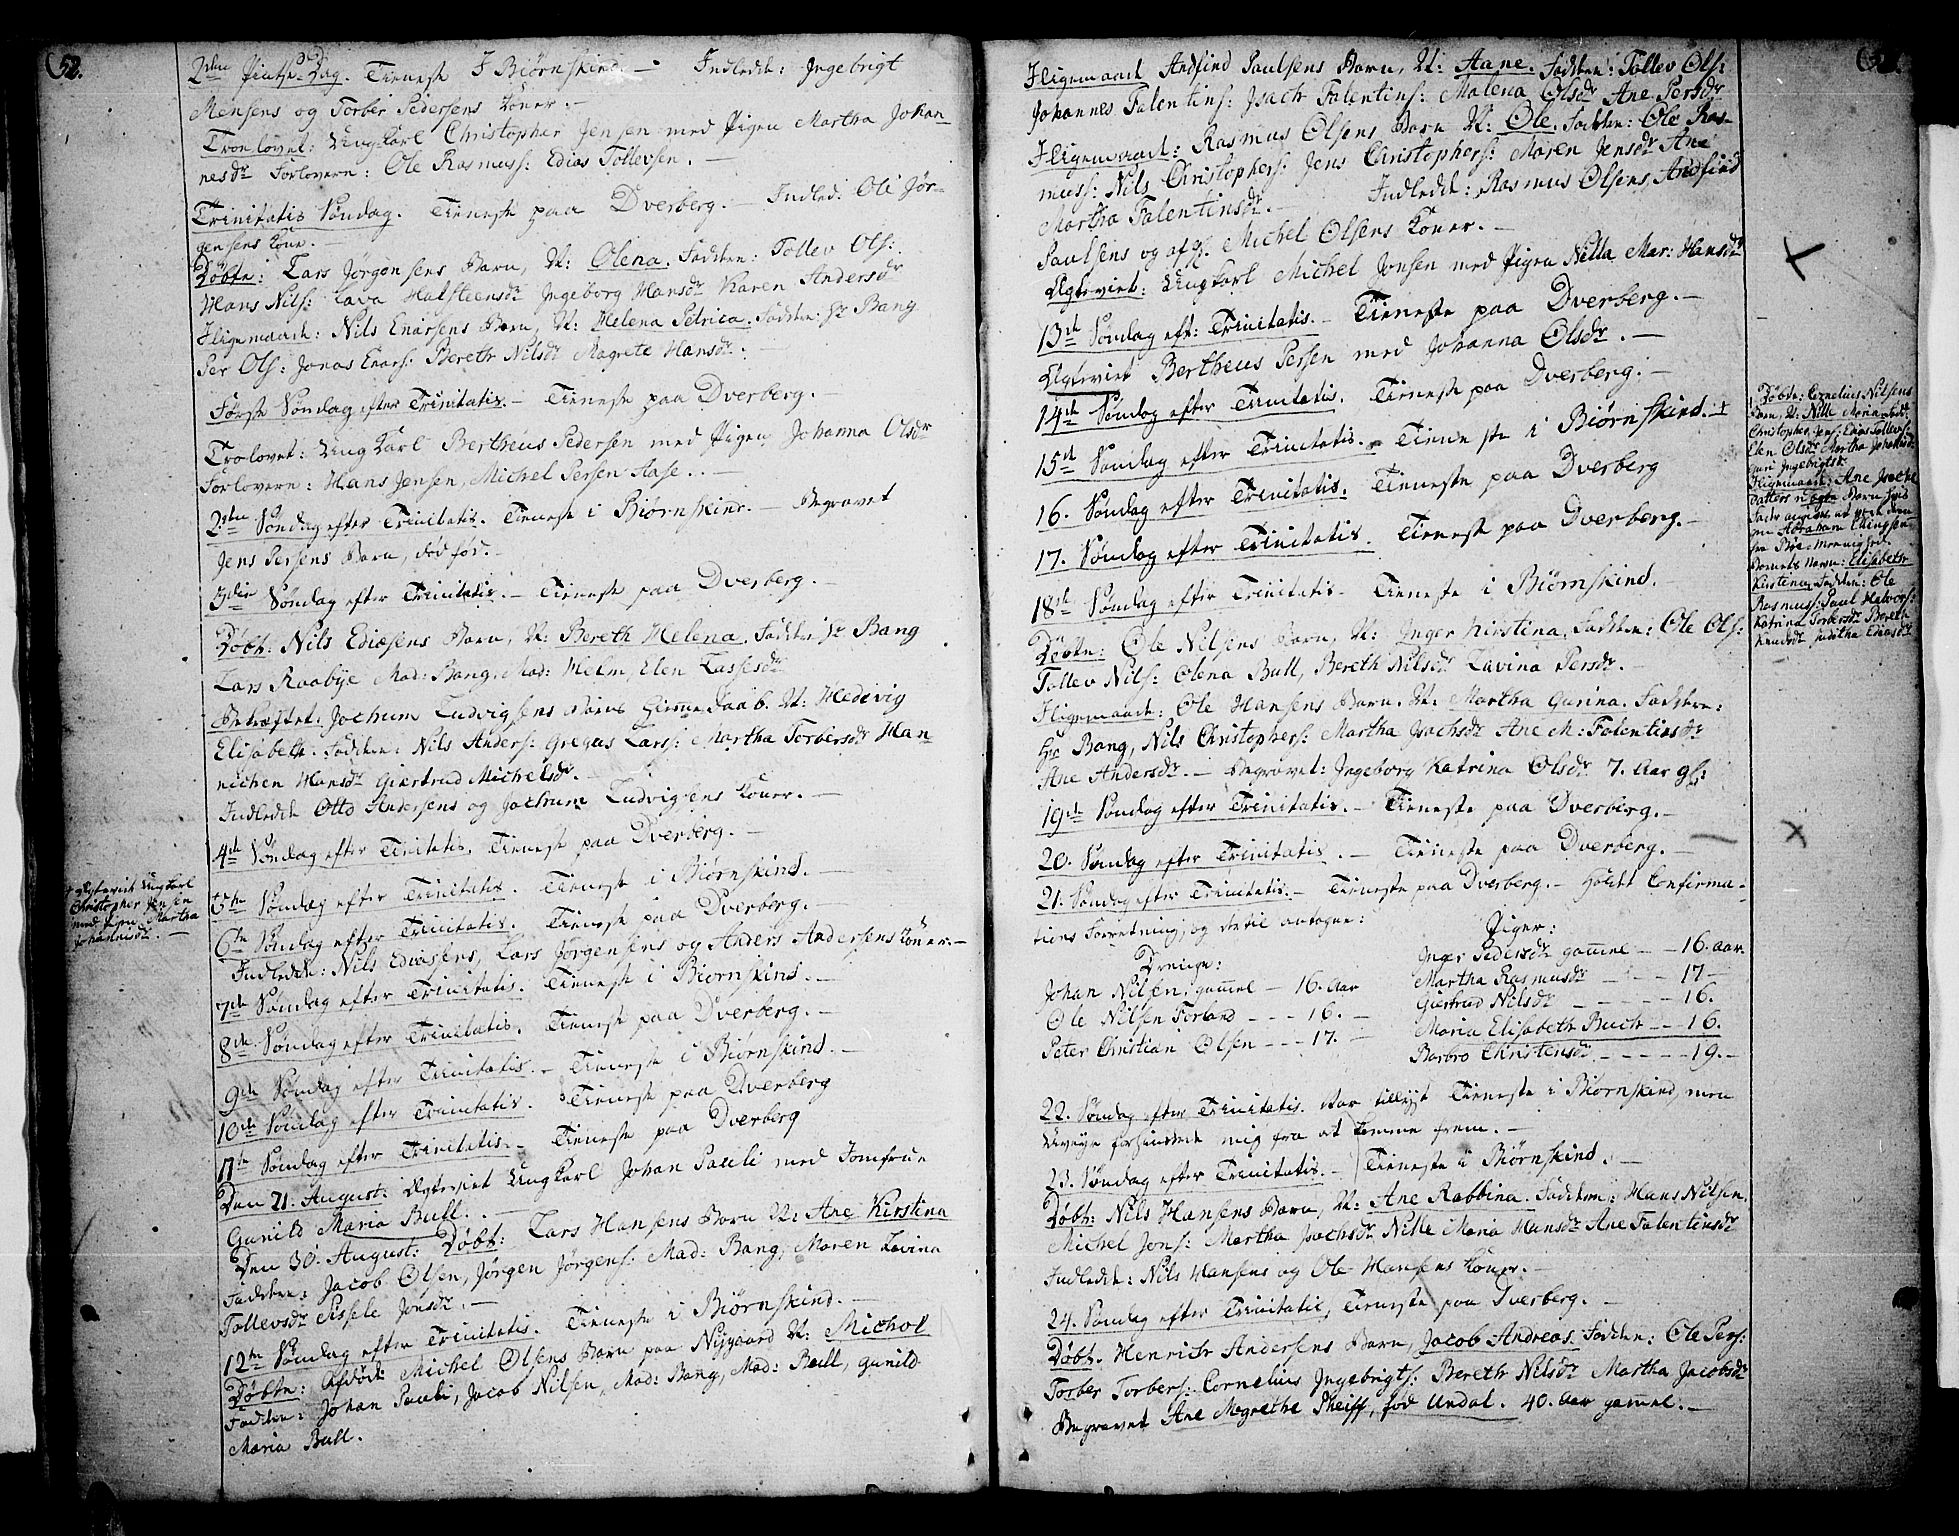 52.
2den Pintse-Dag. Tieneste I Biørnskind. — Indledde: Ingebrigt
Mensens og Torber Pedersens Koner. —
Troelovet: Ungkarl Christopher Jensen med Pigen Martha Johan-
nesdr Forlovern: Ole Rasmuss: Edias Tollevsen. —
Trinitatis Søndag. Tieneste paa Dverberg. — Indled: Ole Jør-
gensens Kone. —
Døbte: Lars Jørgensens Barn, N: Olena. Faddere: Tollev Ols:
Hans Nils: Lava Halsteensdr Ingeborg Hansdr Karen Andersdr
Iligemaade: Nils Enarsens Barn, N: Helena Petrica. Faddere: Hr Bang
Per Ols: Jonas Enars: Bereth Nilsdr Magrete Hansdr. —
Første Søndag efter Trinitatis. — Tieneste paa Dverberg. —
Trolovet: Ung Karl Bertheus Pedersen med Pigen Johanna Olsdr
Forlovern: Hans Jensen, Michel Persen Aase. . —
2den Søndag efter Trinitatis. Tieneste i Biørnskind. — Begravet
Jens Persens Barn, dødfød. —
3die Søndag efter Trinitatis. — Tieneste paa Dverberg. —
Døbt: Nils Ediæsens Barn, N: Bereth Helena. Faddere: Hr Bang
Lars Raabye Mad: Bang, Mad: Melm, Elen Lassesdr
Bekræftet: Jochum Ludvigsens Barns Hiemme Daab. N: Hedevig
Elisabeth. Faddere: Nils Anders: Gregus Lars: Martha Torbersdr Han-
nichen Hansdr Giertrud Michelsdr. —
Indledde Otto Andersens og Jochum Ludvigsens Koner. —
4de Søndag efter Trinitatis. Tieneste paa Dverberg. —
5te Søndag efter Trinitatis. Tieneste i Biørnskind. —
+ Ægteviet Ungkarl
Christopher Jensen
med Pigen Martha
Johannesdr. —
6te Søndag efter Trinitatis. Tieneste paa Dverberg. —
Indledde: Nils Ediæsens, Lars Jørgensens og Anders Andersens Koner. —
7de Søndag efter Trinitatis. Tieneste i Biørnskind. —
8de Søndag efter Trinitatis. Tieneste paa Dverberg. —
9de Søndag efter Trinitatis. — Tieneste i Biørnskind. —
10de Søndag efter Trinitatis. Tieneste paa Dverberg
11te Søndag efter Trinitatis. — Tieneste paa Dverberg
Den 21. August: Ægteviet Ungkarl Johan Pauli med Jomfrue
Gunild Maria Bull. —
Den 30. August: Døbt: Lars Hansens Barn N: Ane Kirstina
Faddere: Jacob Olsen, Jørgen Jørgens: Mad: Bang, Maren Lavina
Tollevsdr Sissele Jonsdr. —
12te Søndag efter Trinitatis. Tieneste i Biørnskind. —
Døbte: Afdøde Michel Olsens Barn paa Nygaard N: Michol
Faddere: Johan Pauli, Jacob Nilsen, Mad: Bang, Mad: Bull, Gunild
Maria Bull.
Iligemaade Andfind Paulsens Barn, N: Aane. Faddere: Tollev Ols:
Johannes Falentins: Isach Falentins: Malena Olsdr Ane Persdr
Iligemaade: Rasmus Olsens Barn N: Ole. Faddere: Ole Ras-
muss: Nils Christophers: Jens Christophers: Maren Jensdr Ane
Martha Falentinsdr. — Indledde: Rasmus Olsens, Andfind
Paulsens og afg. Michel Olsens Koner. —
Ægteviet: Ungkarl Michel Jonsen med Pigen Nilla Mar: Hansdr
13de Søndag eft: Trinitatis. — Tieneste paa Dverberg. —
Ægteviet Bertheus Persen med Johanna Olsdr. —
14de Søndag efter Trinitatis. Tieneste paa Dverberg. —
15de Søndag efter Trinitatis. — Tieneste i Biørnskind. +
16. Søndag efter Trinitatis. Tieneste paa Dverberg
17. Søndag efter Trinitatis. Tieneste paa Dverberg. —
18de Søndag efter Trinitatis. Tieneste i Biørnskind.
Døbte: Ole Nilsens Barn, N: Inger Kirstina. Faddere: Ole Ols:
Tollev Nils: Olena Bull, Bereth Nilsdr Lavina Persdr. —
Iligemaade: Ole Hansens Barn. N: Martha Gurina. Faddere:
Hr Bang, Nils Christophers: Martha Isachsdr Ane M: Falentinsdr
Ane Andersdr. — Begravet: Ingeborg Katrina Olsdr 7. Aar gl:
19de Søndag efter Trinitatis. — Tieneste paa Dverberg. —
20. Søndag efter Trinitatis. — Tieneste paa Dverberg. —
21. Søndag efter Trinitatis. — Tieneste paa Dverberg. — Holdt Confirma-
tions Forretning, og dertil antagne:
Drenge:
Johan Nilsen, gammel — 16. Aar
Ole Nilsen Forland - - - 16. —
Peter Christian Olsen - - - 17. —
Piger:
Inger Pedersdr gammel — — 16. aar.
Martha Rasmusdr — — — 17 —
Giertrud Nilsdr - - - - - 16.
Maria Elisabeth Buch — — 16.
Barbro Christensdr - - - - - 19. —
22. Søndag efter Trinitatis. Var tillyst Tieneste i Biørnskind, men
Uveyr forhindrede mig fra at komme frem. —
23. Søndag efter Trinitatis. — Tieneste i Biørnskind. —
Døbt: Nils Hansens Barn, N: Ane Rabbina. Faddere: Hans Nilsen,
Michel Jons: Martha Isachsdr Nille Maria Hansdr Ane Falentinsdr
Indledde: Nils Hansens og Ole Hansens Koner. —
24. Søndag efter Trinitatis, Tieneste paa Dverberg. —
Døbt. Henrich Andersens Barn, Jacob Andreas. Faddere: Ole Pers:
Torber Torbers: Cornelius Ingebrigts: Bereth Nilsdr Martha Jacobsdr
Begravet Ane Magrethe Pheiff, fød Undal. 40. Aar gammel. —
+ Døbte: Cornelius Nilsens
Barn, N: Nille Maria. Fadd:
Christopher Jens: Edias Tollevs:
Elen Olsdr Martha Johannesdr
Guri Ingebrigtsdr.
Iligemaade: Ane Isachs
Datters uægte Barn, hvis
Fader angives at være
Abraham Ellingsen
fra Bøe-Menighed.
Barnets Navn: Elisabeth
Kirstina, Faddere: Ole
Rasmuss: Paul Halvors:
Katrina Torbersdr Bereth
Knudsdr Juditha Ediasdr